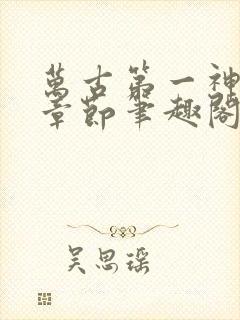 萬古第一神
章節筆趣閣
吴思瑶